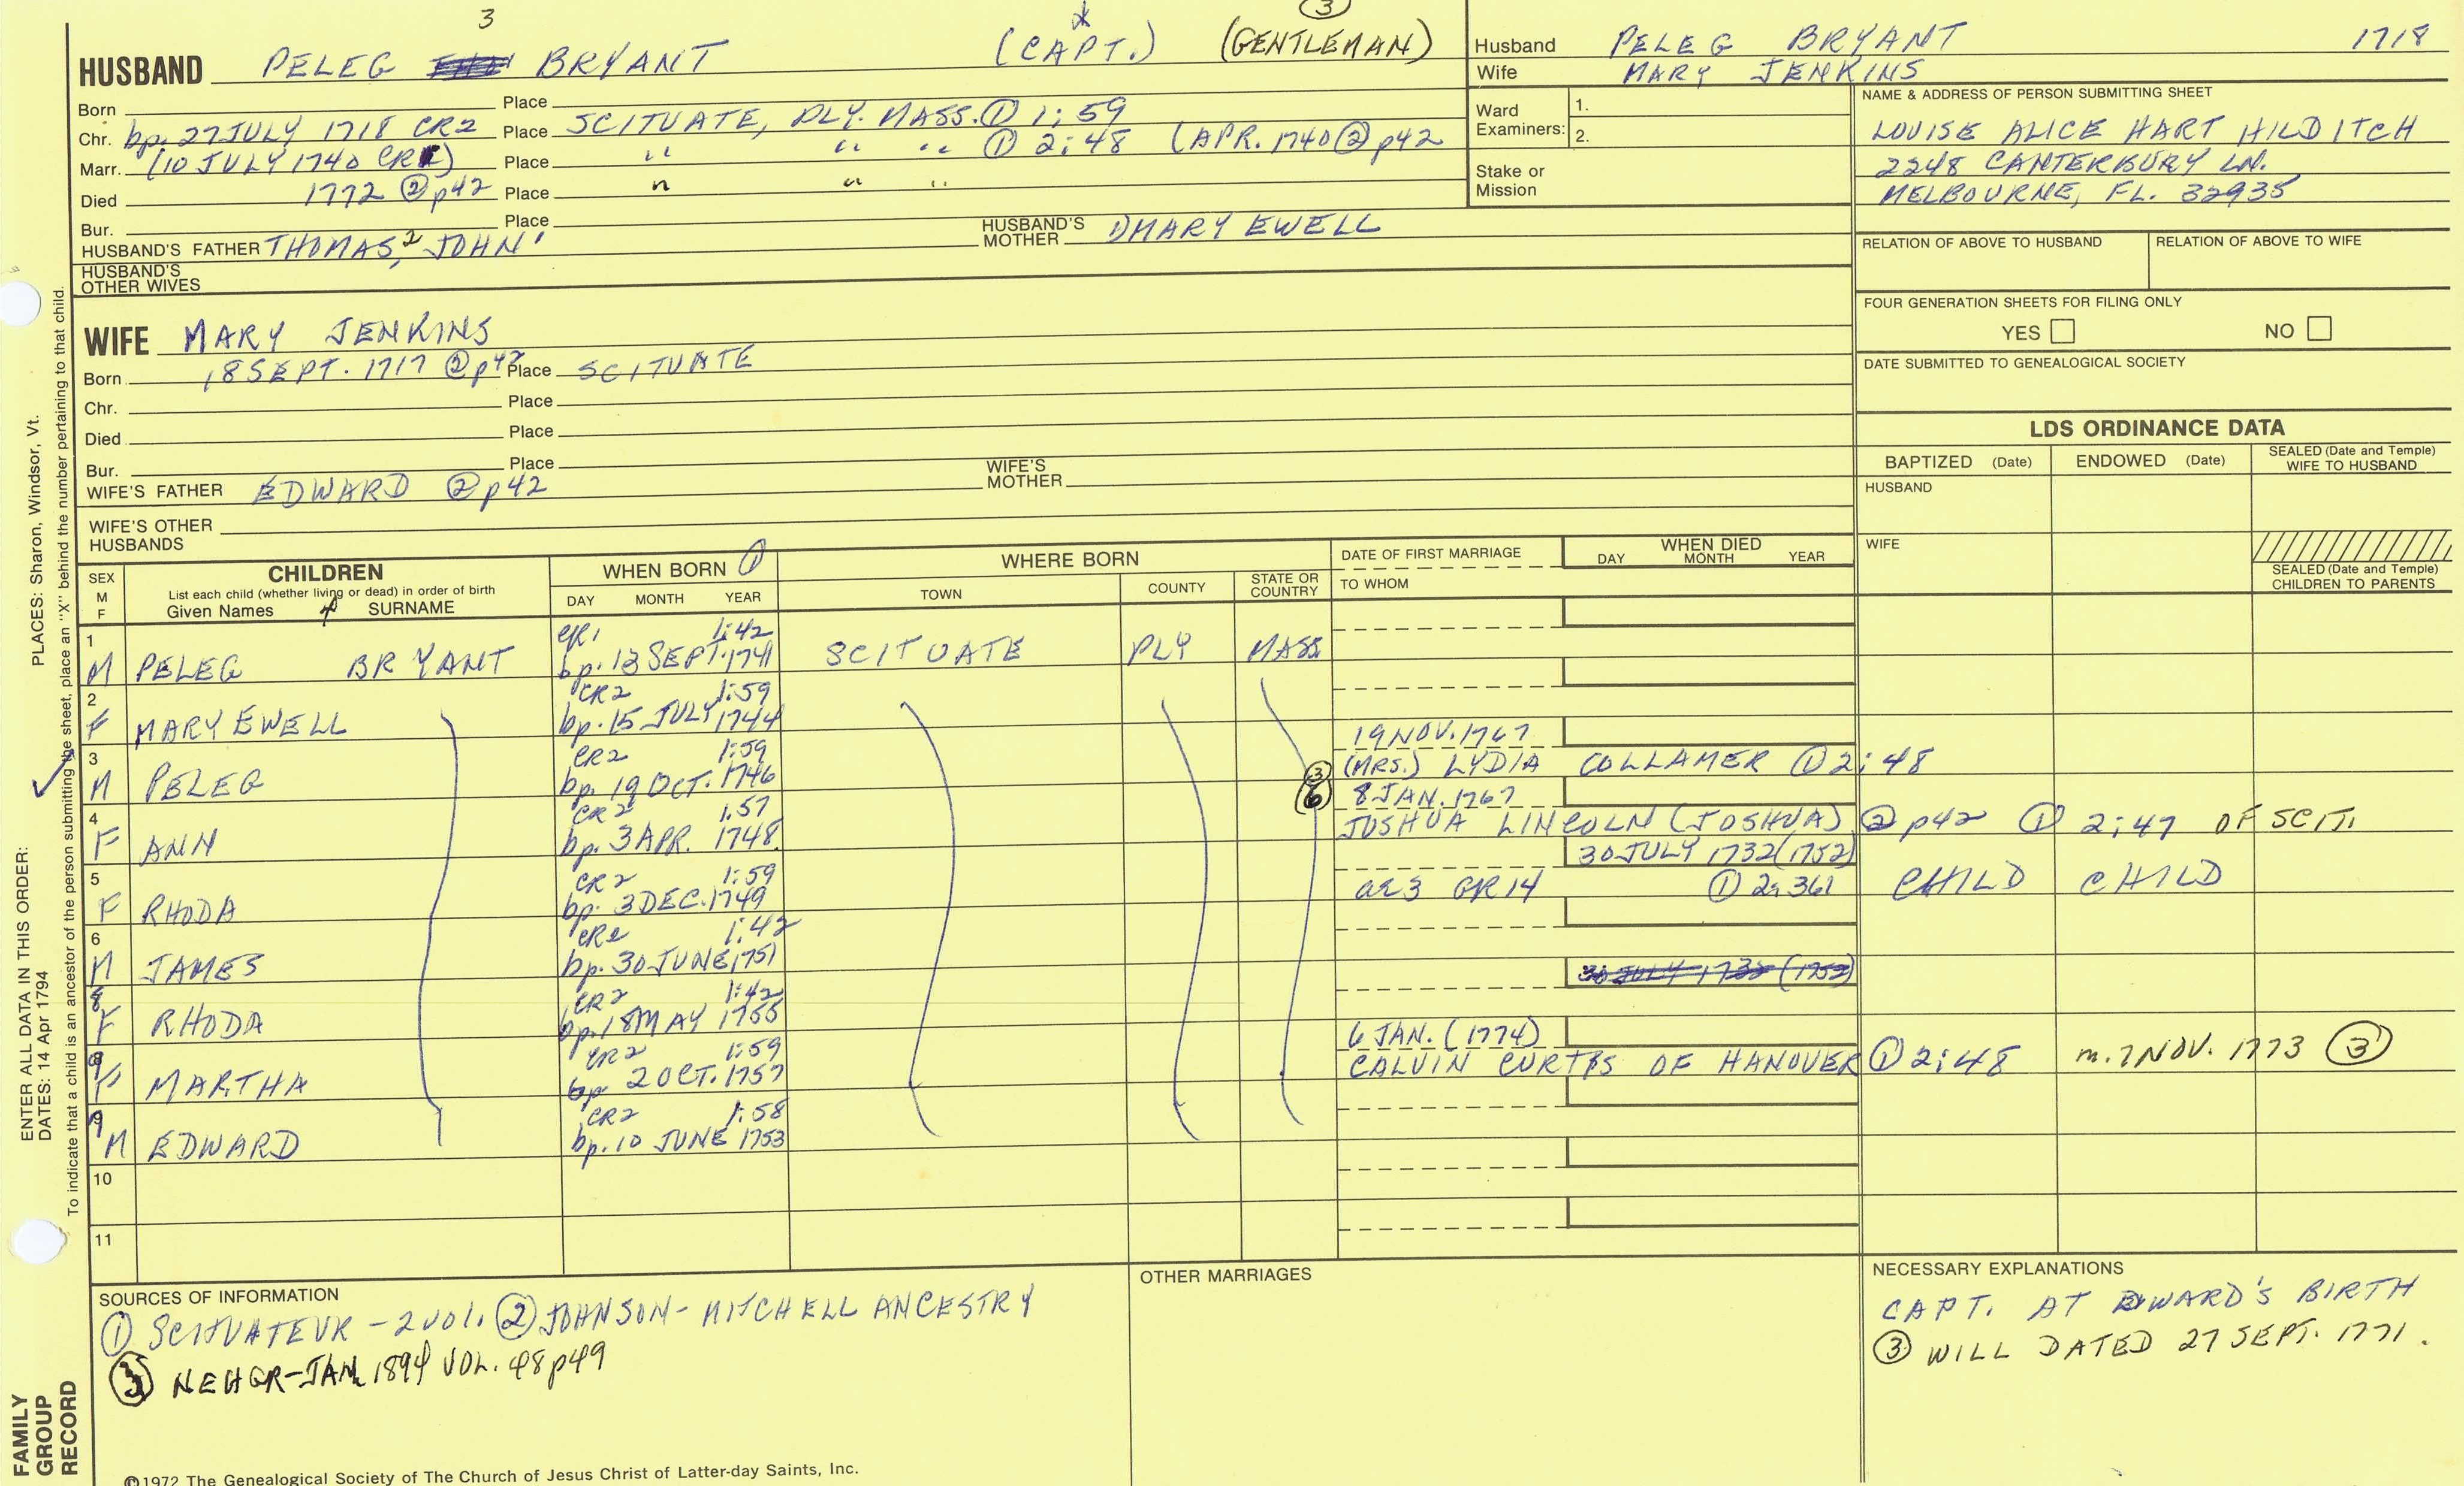 3
HUSBAND PELEG BRYANT (CAPT.) (GENTLEMAN) ③
Born Place
Chr. bp. 27 JULY 1718 CR2 Place SCITUATE, PLY. MASS. ① 1:59
Marr. (10 JULY 1740 CR1) Place " " " ① 2:48 (APR. 1740 ② p42
Died 1772 ② p42 Place " " "
Bur. Place
HUSBAND'S FATHER THOMAS,² JOHN¹ HUSBAND'S MOTHER MARY EWELL
HUSBAND'S OTHER WIVES
Husband PELEG BRYANT 1718
Wife MARY JENKINS
Ward Examiners: 1.
2.
Stake or Mission
NAME & ADDRESS OF PERSON SUBMITTING SHEET
LOUISE ALICE HART HILDITCH
2248 CANTERBURY LN.
MELBOURNE, FL. 32935
RELATION OF ABOVE TO HUSBAND RELATION OF ABOVE TO WIFE
FOUR GENERATION SHEETS FOR FILING ONLY
YES NO
DATE SUBMITTED TO GENEALOGICAL SOCIETY
WIFE MARY JENKINS
Born 18 SEPT. 1717 ② p42 Place SCITUATE
Chr. Place
Died Place
Bur. Place
WIFE'S FATHER EDWARD ② p42 WIFE'S MOTHER
WIFE'S OTHER HUSBANDS
LDS ORDINANCE DATA
BAPTIZED (Date) ENDOWED (Date) SEALED (Date and Temple) WIFE TO HUSBAND
HUSBAND
WIFE
SEALED (Date and Temple) CHILDREN TO PARENTS
SEX M F CHILDREN
List each child (whether living or dead) in order of birth
Given Names SURNAME
WHEN BORN ①
DAY MONTH YEAR
WHERE BORN
TOWN COUNTY STATE OR COUNTRY
DATE OF FIRST MARRIAGE
TO WHOM
WHEN DIED
DAY MONTH YEAR
1 CR1 1:42
M PELEG BRYANT bp. 13 SEPT. 1741 SCITUATE PLY MASS
2 CR2 1:59
F MARY EWELL bp. 15 JULY 1744
3 CR2 1:59 19 NOV. 1767
M PELEG bp. 19 OCT. 1746 (MRS.) LYDIA COLLAMER ① 2:48
4 CR2 1:57 ③ 8 JAN. 1767
F ANN bp. 3 APR. 1748 JOSHUA LINCOLN (JOSHUA) ② p42 ① 2:47 OF SCIT.
5 CR2 1:59 30 JULY 1732 (1752)
F RHODA bp. 3 DEC. 1749 ae 3 GR14 ① 2:361 CHILD CHILD
6 CR2 1:42
M JAMES bp. 30 JUNE 1751 30 JULY 1732 (1752)
8 CR2 1:42
F RHODA bp. 18 MAY 1755
9 CR2 1:59 6 JAN. (1774)
F MARTHA bp 2 OCT. 1757 CALVIN CURTIS OF HANOVER ① 2:48 m. 7 NOV. 1773 ③
CR2 1:58
M EDWARD bp. 10 JUNE 1753
10
11
SOURCES OF INFORMATION
① SCITUATE VR - 2 vol. ② JOHNSON-MITCHELL ANCESTRY
③ NEHGR-JAN. 1894 VOL. 48 p49
OTHER MARRIAGES
NECESSARY EXPLANATIONS
CAPT. AT EDWARD'S BIRTH
③ WILL DATED 27 SEPT. 1771.
©1972 The Genealogical Society of The Church of Jesus Christ of Latter-day Saints, Inc.
FAMILY GROUP RECORD
ENTER ALL DATA IN THIS ORDER:
DATES: 14 Apr 1794
PLACES: Sharon, Windsor, Vt.
To indicate that a child is an ancestor of the person submitting the sheet, place an "X" behind the number pertaining to that child.